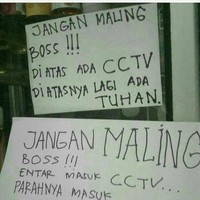 JANGAN MALING
BOSS !!!
DI ATAS ADA CCTV
DI ATASNYA LAGI ADA
TUHAN.
JANGAN MALING
BOSS!!!
ENTAR MASUK CCTV...
PARAHNYA MASUK